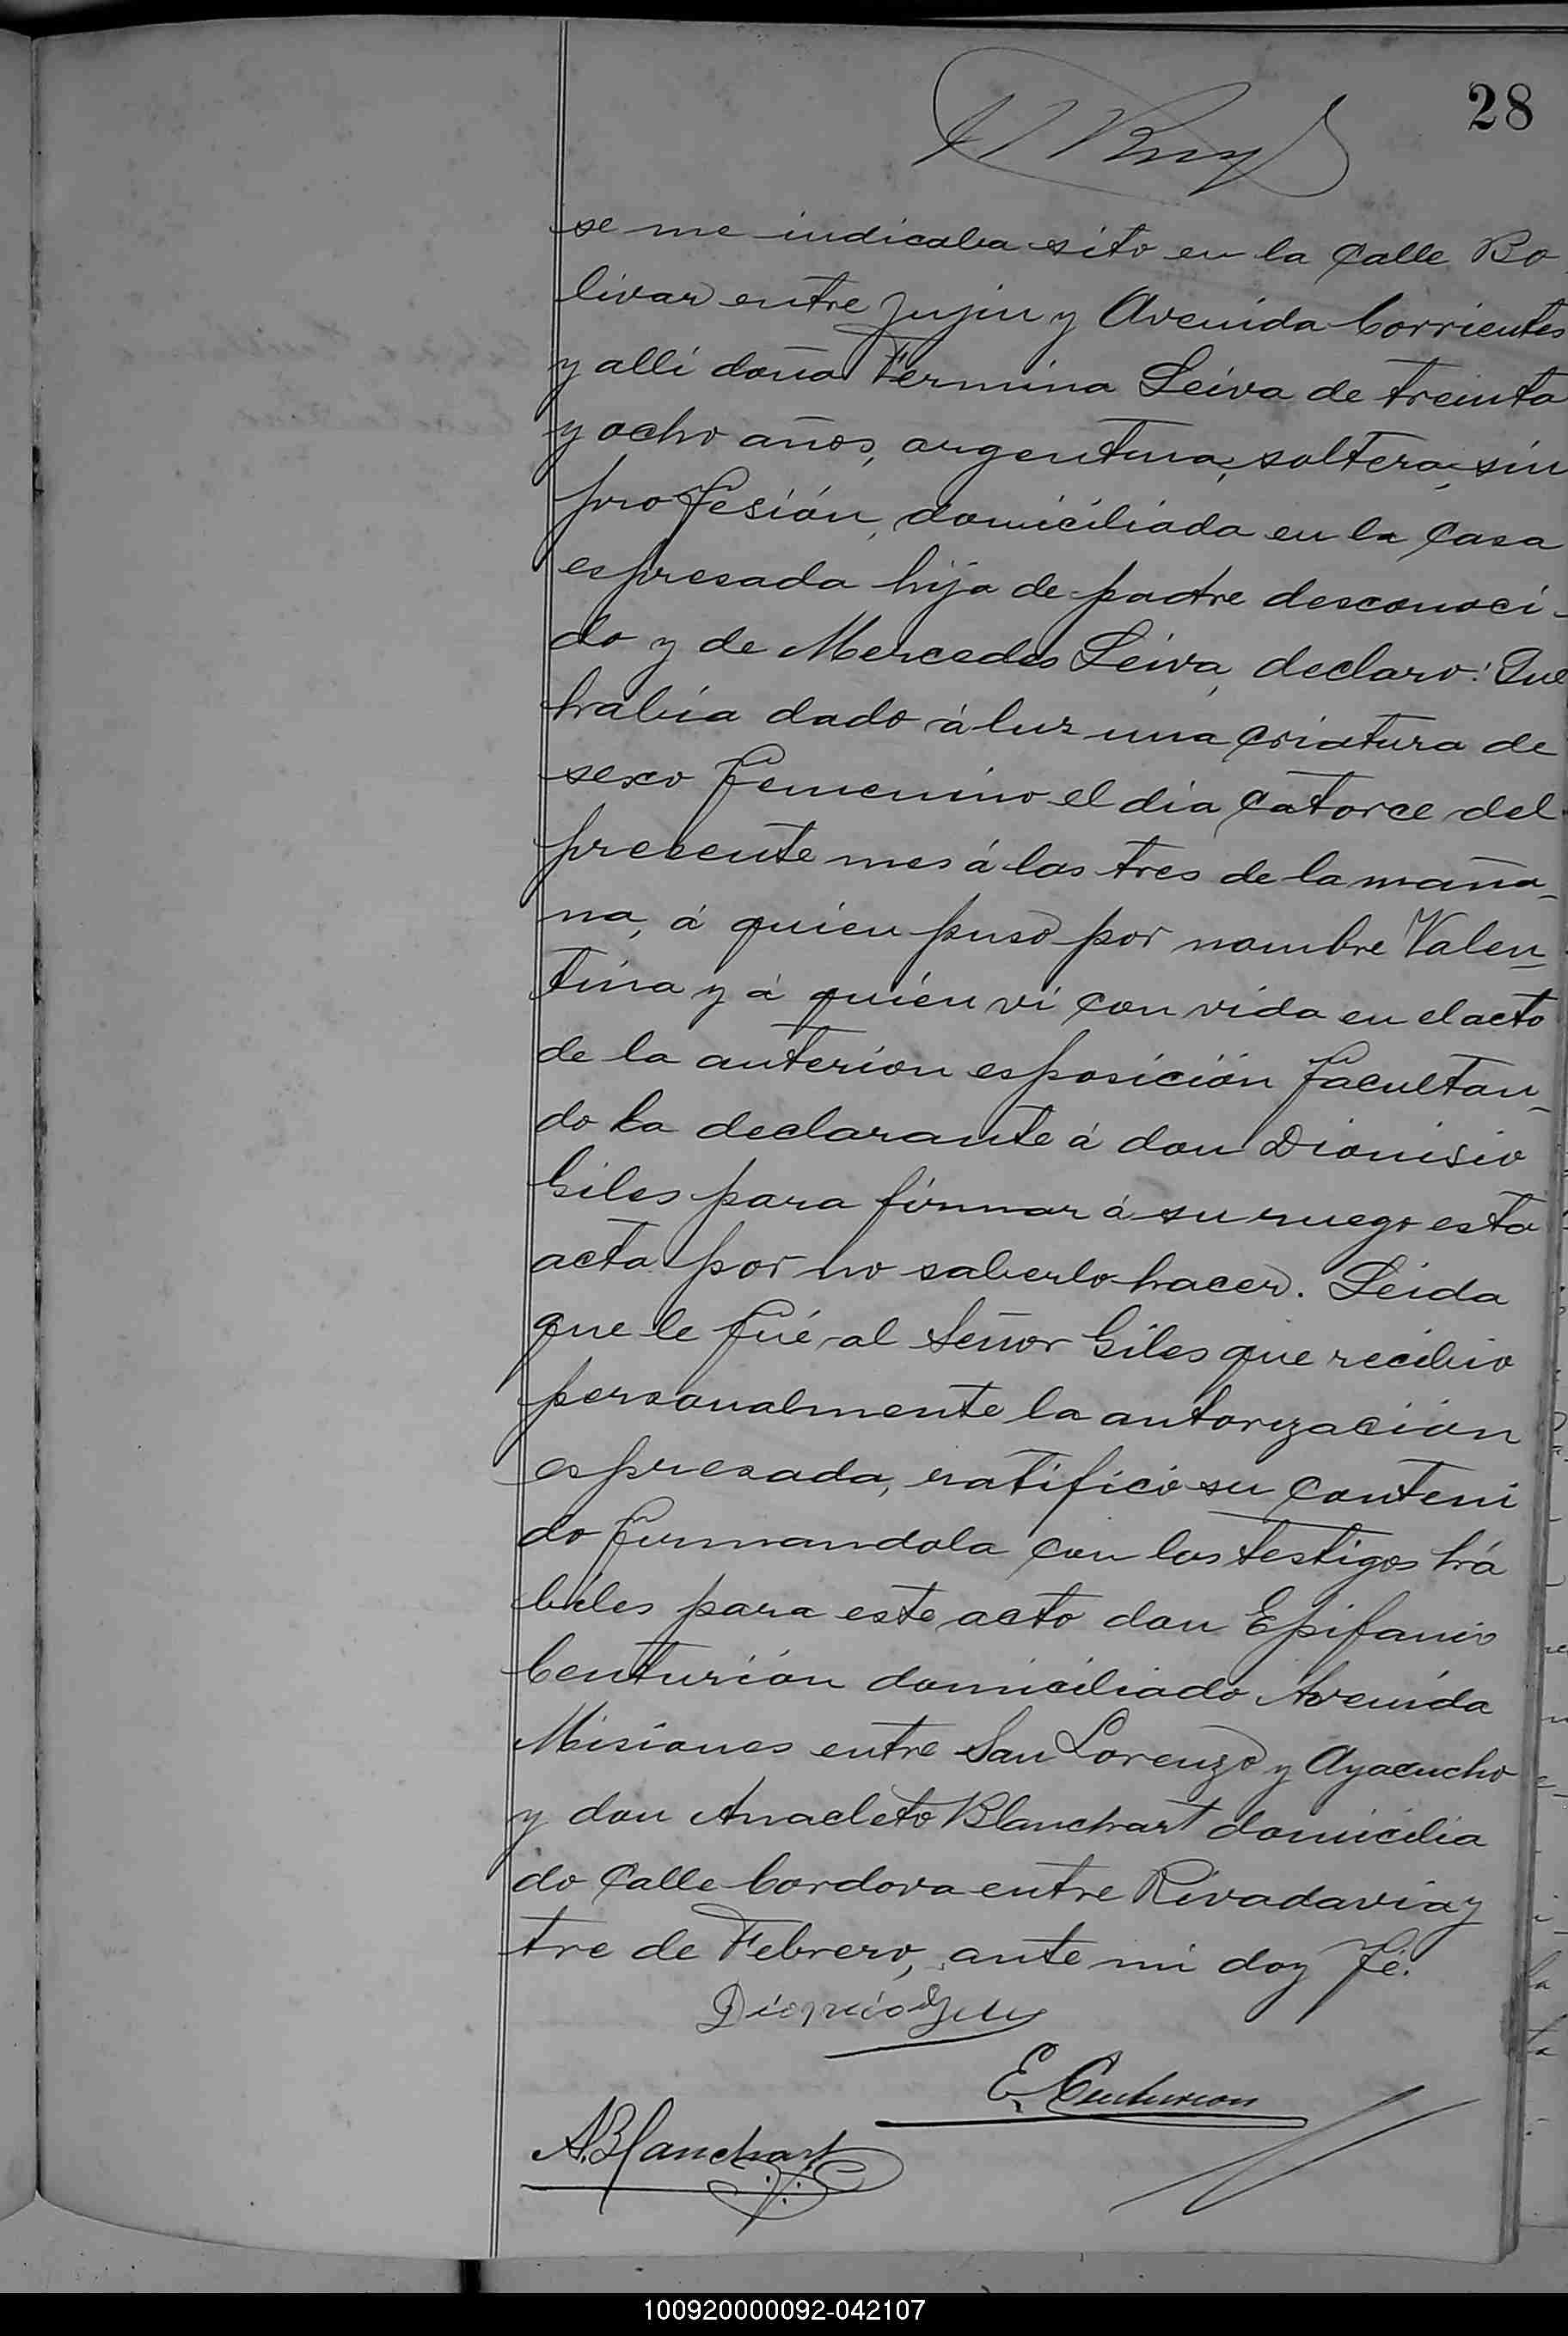 28
se me indicaba sito en la Calle Bo
livar entre Jujui y Avenida Corrientes
y alli doña Fermina Leiva de treinta
y ocho años, argentina, soltera, sin
profesión, domiciliada en la casa
espresada hija de padre desconoci-
do y de Mercedes Leiva, declaro: Que
habia dado á luz una criatura de
sexo femenino el dia catorce del
presente mes á las tres de la maña-
na, á quien puso por nombre Valen-
tina y á quien vi con vida en el acto
de la anterior esposición facultan-
do la declarante á don Dionisio
Giles para firmar á su ruego esta
acta por no saberlo hacer. Leida
que le fué al Señor Giles que recibio
personalmente la autorización
espresada, ratificó su conteni
do firmandola con los testigos há
biles para este acto don Epifanio
Centurión domiciliado Avenida
Misiones entre San Lorenzo y Ayacucho
y don Anacleto Blanchart domicilia
do Calle Cordova entre Rivadavia y
tre de Febrero, ante mi doy fé.
Dionicio Giles
E. Centurion
A. Blanchart
100920000092-042107